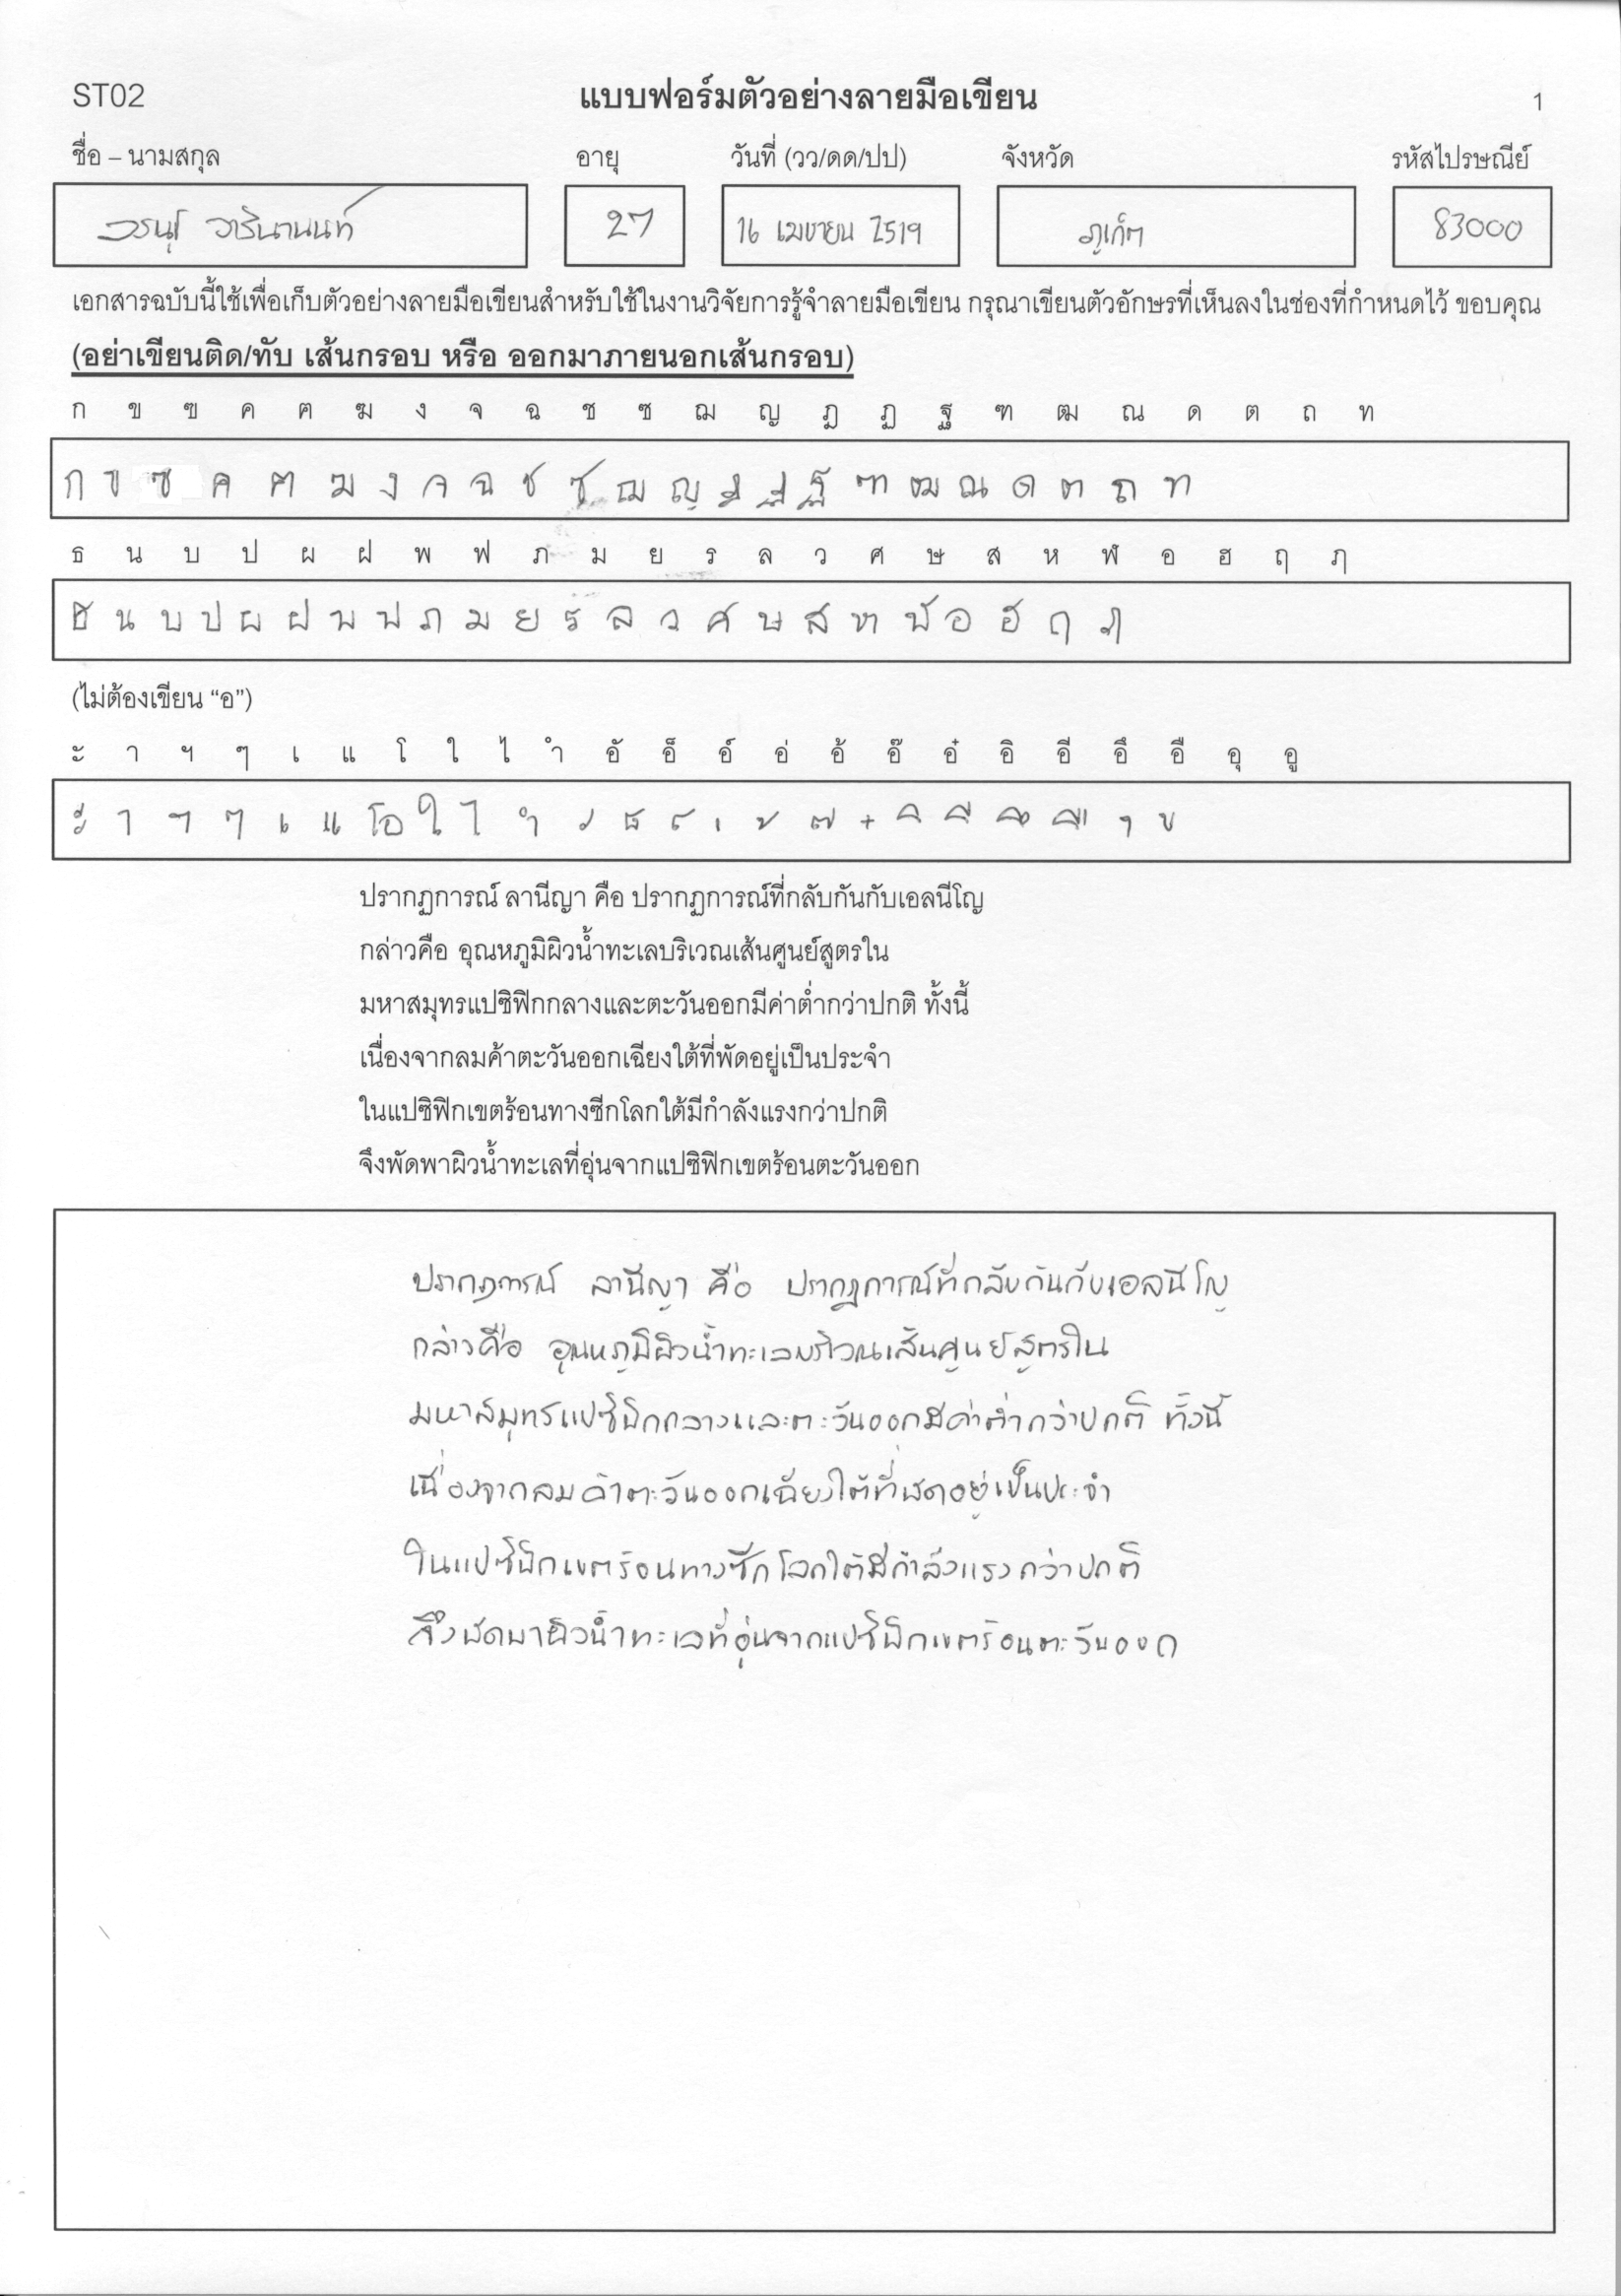 ST02 แบบฟอร์มตัวอย่างลายมือเขียน 1
ชื่อ – นามสกุล อายุ วันที่ (วว/ดด/ปป) จังหวัด รหัสไปรษณีย์
27 16 เมษายน 2519 ภูเก็ต 83000
เอกสารฉบับนี้ใช้เพื่อเก็บตัวอย่างลายมือเขียนสำหรับใช้ในงานวิจัยการรู้จำลายมือเขียน กรุณาเขียนตัวอักษรที่เห็นลงในช่องที่กำหนดไว้ ขอบคุณ
(อย่าเขียนติด/ทับ เส้นกรอบ หรือ ออกมาภายนอกเส้นกรอบ)
ก ข ฃ ค ฅ ฆ ง จ ฉ ช ซ ฌ ญ ฎ ฏ ฐ ฑ ฒ ณ ด ต ถ ท
ก ข ฃ ค ฅ ฆ ง จ ฉ ช ซ ฌ ญ ฎ ฏ ฐ ฑ ฒ ณ ด ต ถ ท
ธ น บ ป ผ ฝ พ ฟ ภ ม ย ร ล ว ศ ษ ส ห ฬ อ ฮ ฤ ฦ
ธ น บ ป ผ ฝ พ ฟ ภ ม ย ร ล ว ศ ษ ส ห ฬ อ ฮ ฤ ฦ
(ไม่ต้องเขียน “อ”)
ะ า ฯ ๆ เ แ โ ใ ไ ำ อั อ็ อ์ อ่ อ้ อ๊ อ๋ อิ อี อึ อื อุ อู
ะ า ฯ ๆ เ แ โอ ใ ไ ำ ั ็ ์ ่ ้ ๊ ๋ ิ ี ึ ื ุ ู
ปรากฏการณ์ ลานีญา คือ ปรากฏการณ์ที่กลับกันกับเอลนีโญ
กล่าวคือ อุณหภูมิผิวน้ำทะเลบริเวณเส้นศูนย์สูตรใน
มหาสมุทรแปซิฟิกกลางและตะวันออกมีค่าต่ำกว่าปกติ ทั้งนี้
เนื่องจากลมค้าตะวันออกเฉียงใต้ที่พัดอยู่เป็นประจำ
ในแปซิฟิกเขตร้อนทางซีกโลกใต้มีกำลังแรงกว่าปกติ
จึงพัดพาผิวน้ำทะเลที่อุ่นจากแปซิฟิกเขตร้อนตะวันออก
ปรากฏการณ์ ลานีญา คือ ปรากฏการณ์ที่กลับกันกับเอลนีโญ
กล่าวคือ อุณหภูมิผิวน้ำทะเลบริเวณเส้นศูนย์สูตรใน
มหาสมุทรแปซิฟิกกลางและตะวันออกมีค่าต่ำกว่าปกติ ทั้งนี้
เนื่องจากลมค้าตะวันออกเฉียงใต้ที่พัดอยู่เป็นประจำ
ในแปซิฟิกเขตร้อนทางซีกโลกใต้มีกำลังแรงกว่าปกติ
จึงพัดพาผิวน้ำทะเลที่อุ่นจากแปซิฟิกเขตร้อนตะวันออก